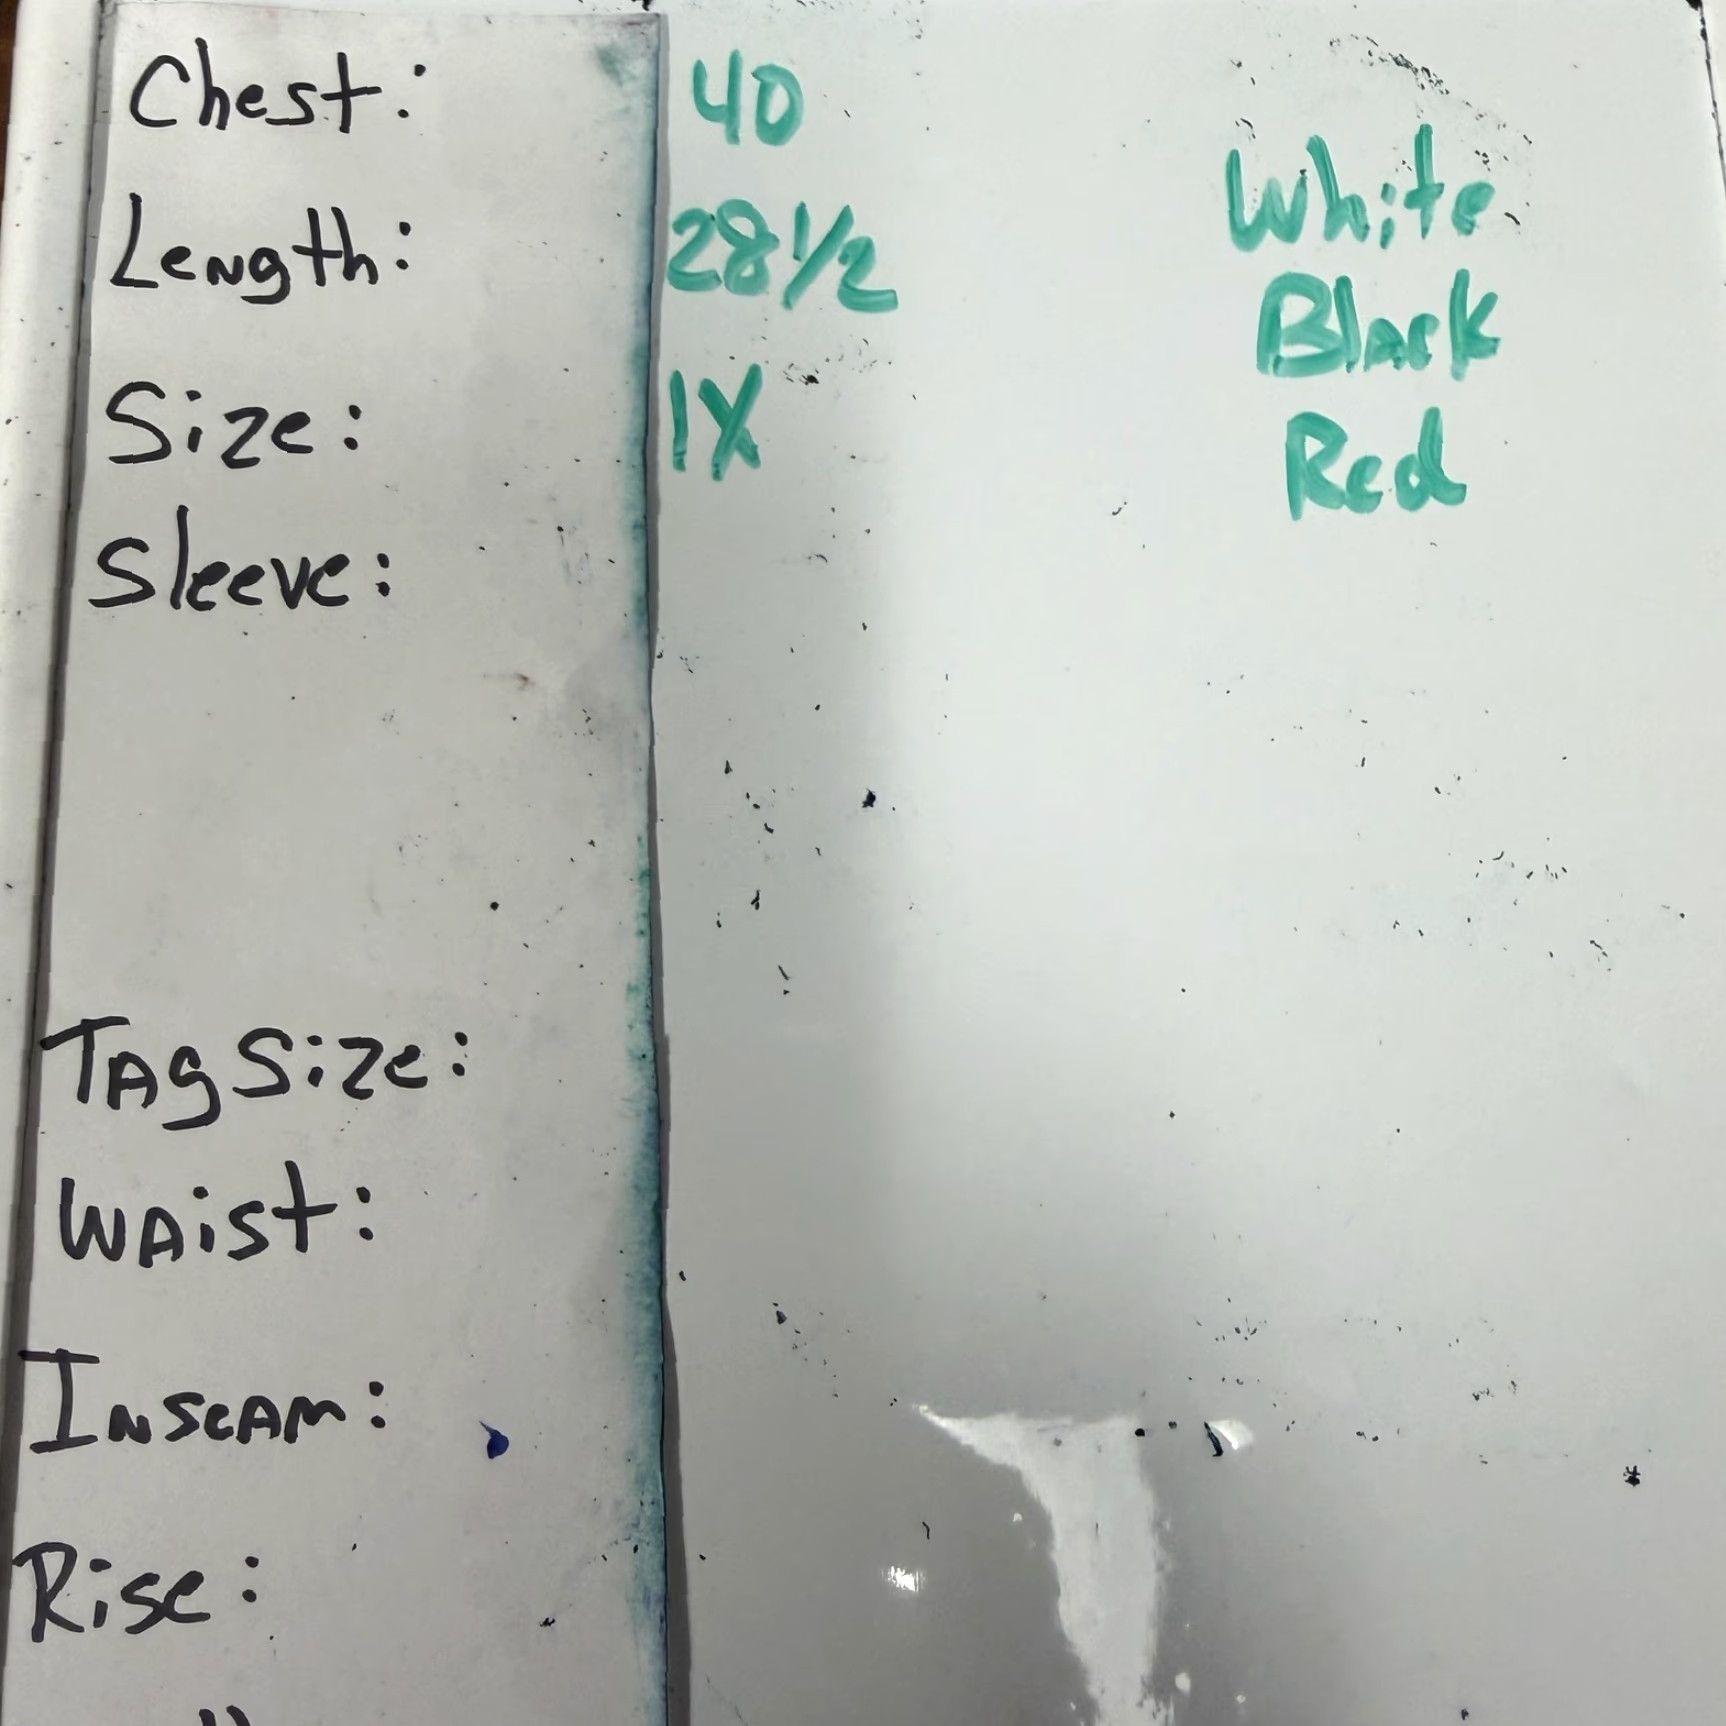 Chest: 40
Length: 28 1/2
Size: 1X
Sleeve:
Tag Size:
Waist:
Inseam:
Rise:
White
Black
Red